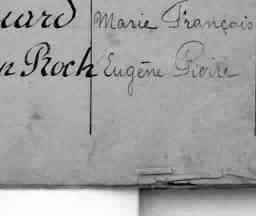 uard Marie François
n Roch Eugène